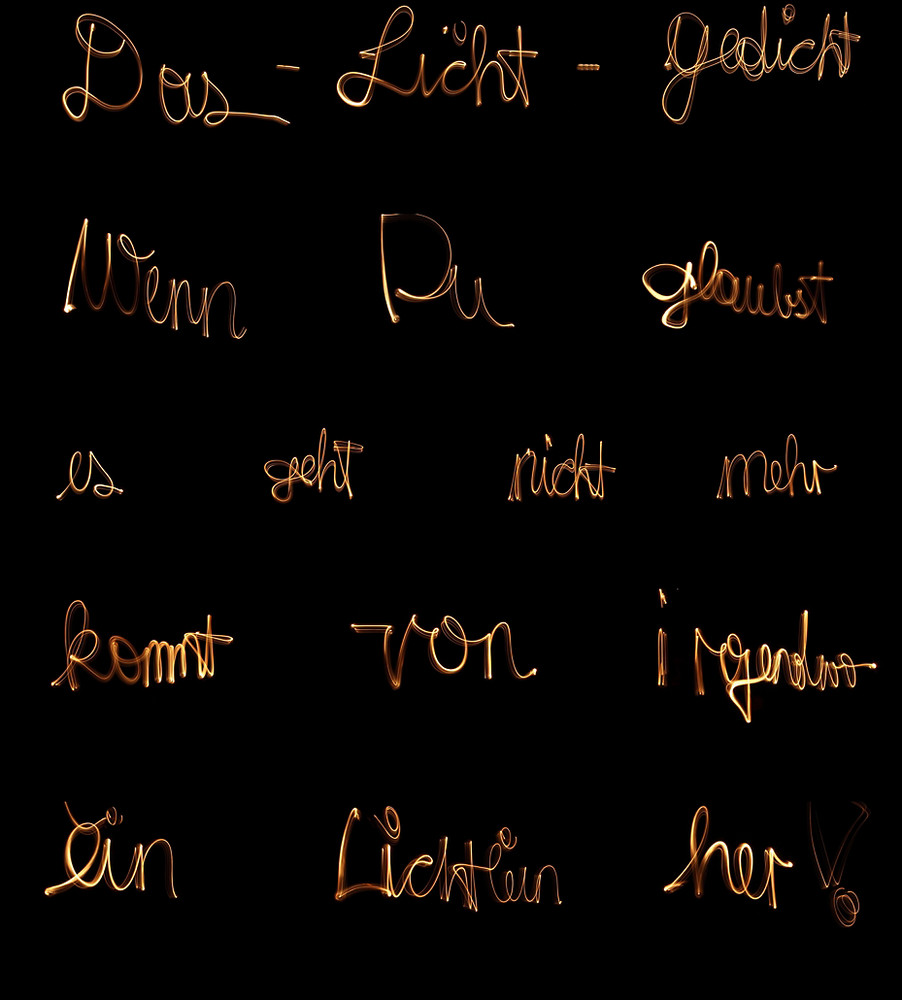 Das - Licht - gedicht
Wenn Du glaubst
es geht nicht mehr
kommt von irgendwo
ein Lichtlein her!